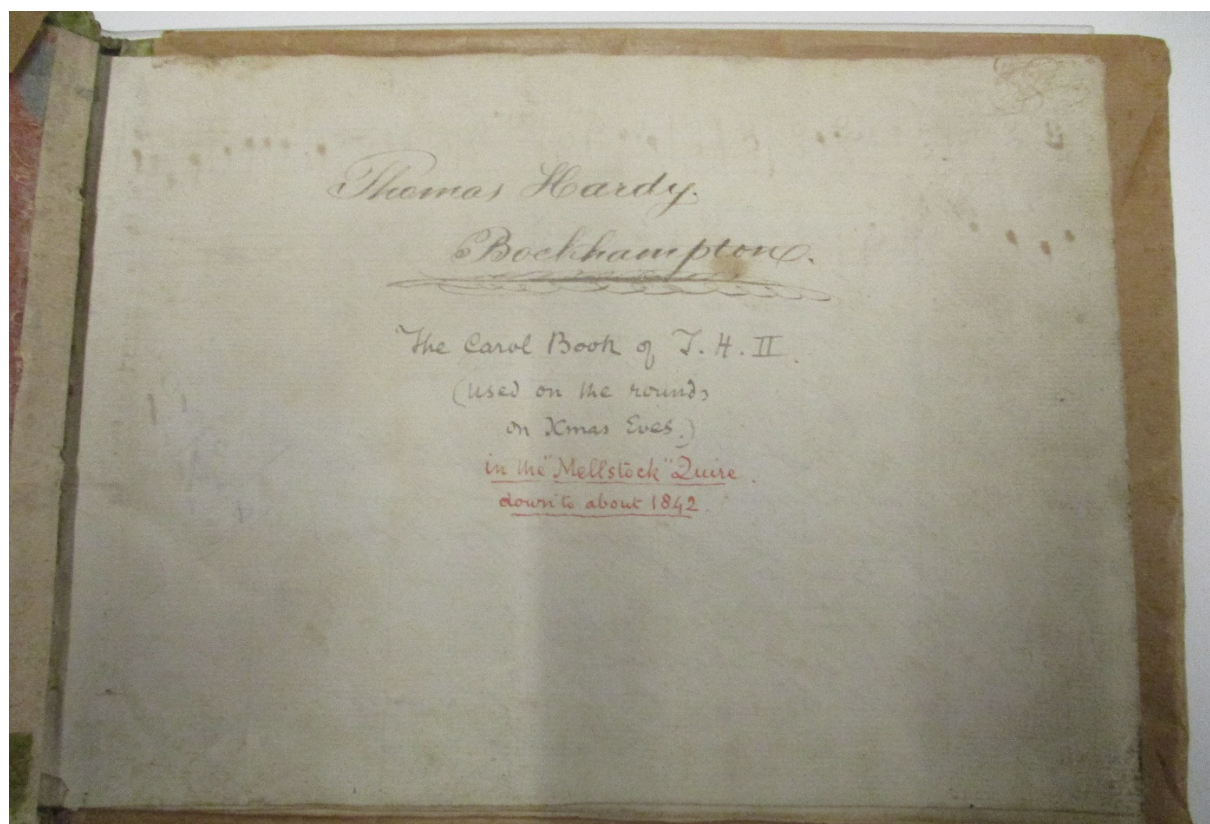 Thomas Hardy.
Bockhampton.
The Carol Book of T. H. II.
(used on the rounds
on Xmas Eves.)
in the "Mellstock" Quire.
down to about 1842.